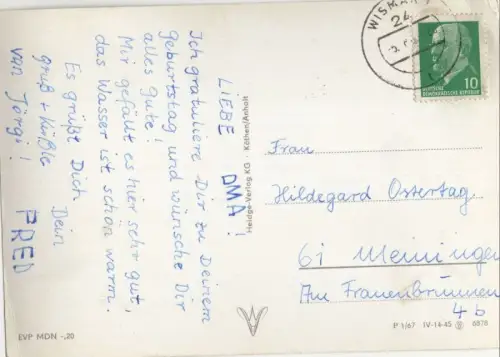 LIEBE OMA!
Ich gratuliere Dir zu Deinem
Geburtstag und wünsche Dir
alles Gute!
Mir gefällt es hier sehr gut,
das Wasser ist schön warm.
Es grüßt Dich
Dein
FRED
gruß + Küßle
von Jörgi!
Heldge-Verlag KG · Köthen/Anhalt
WISMAR
24
DEUTSCHE
DEMOKRATISCHE REPUBLIK
10
Frau
Hildegard Ostertag
61 Meiningen
Am Frauenbrunnen
4b
EVP MDN -,20
P 1/67 IV-14-45 6876